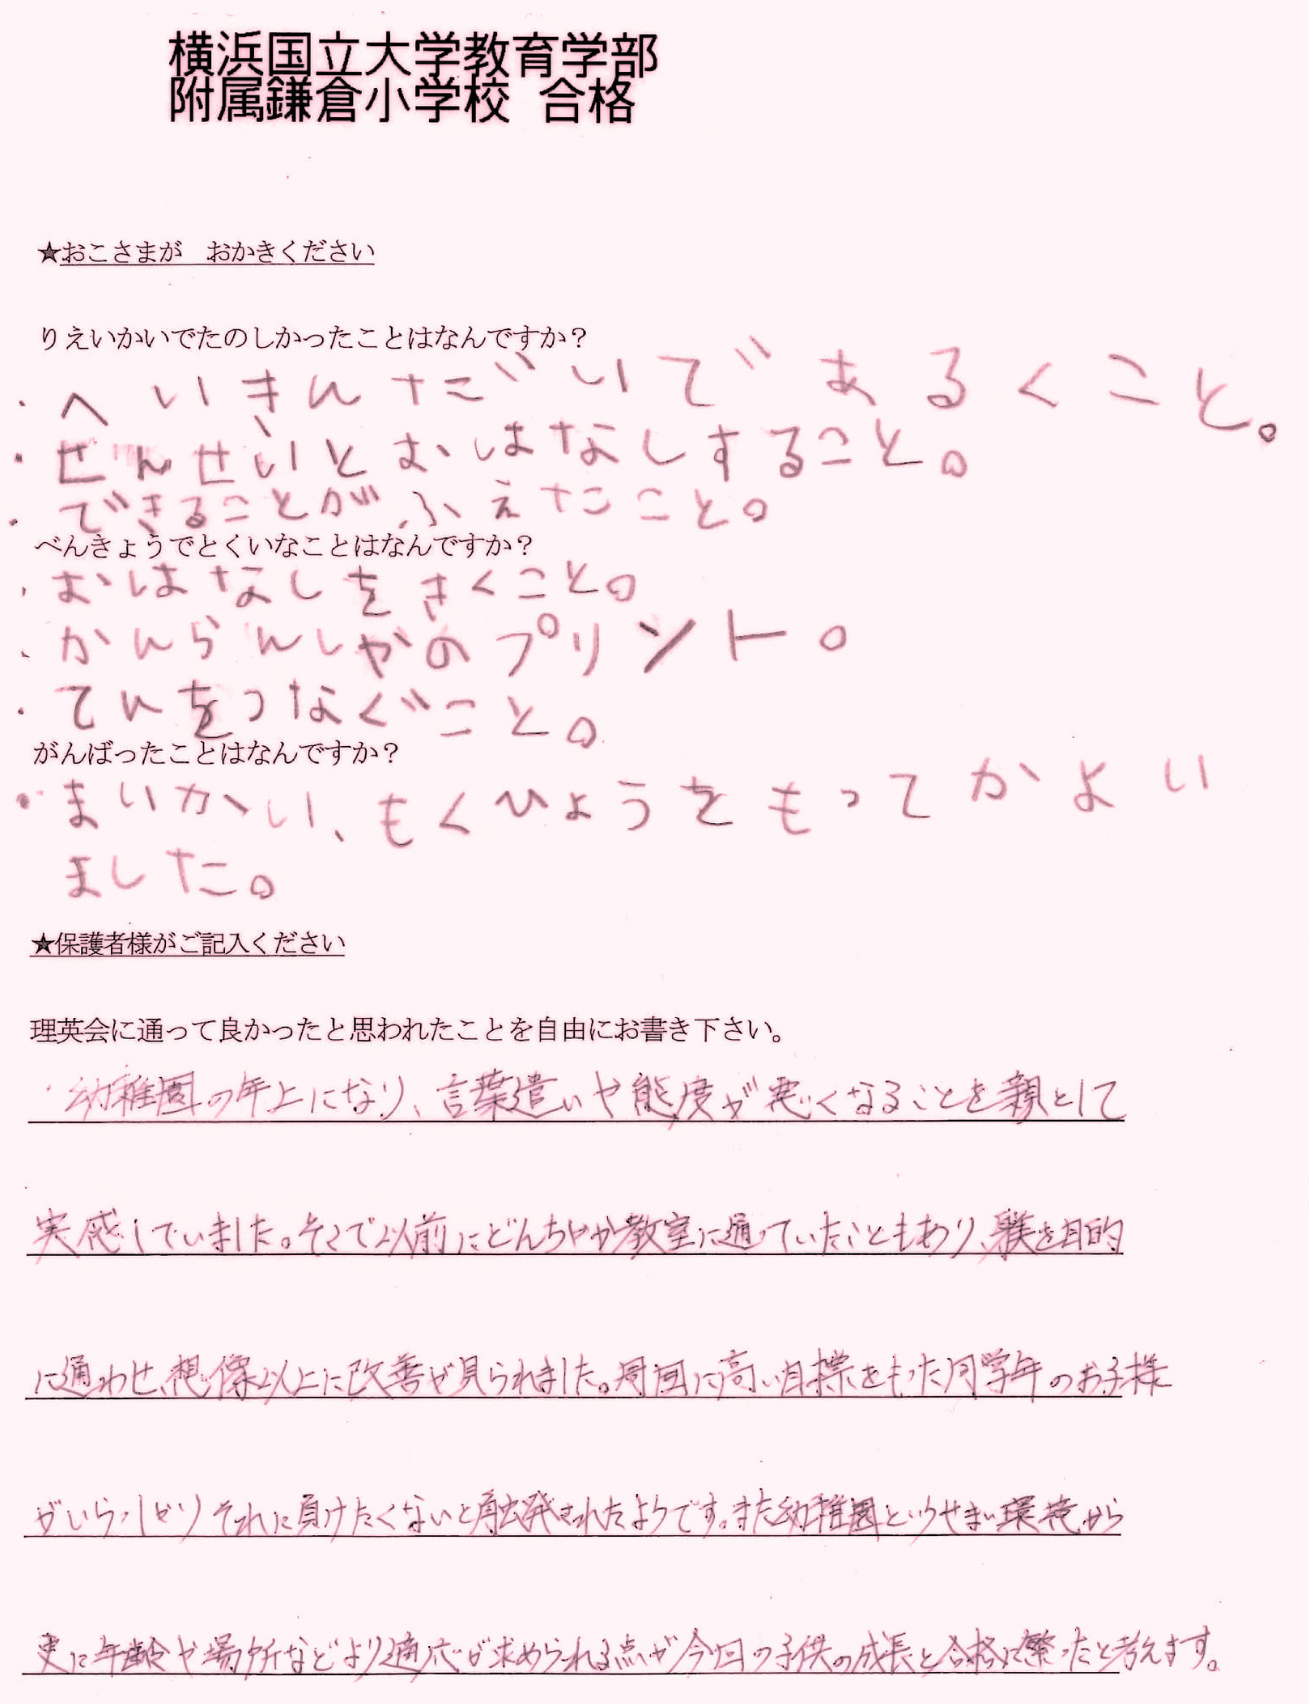 横浜国立大学教育学部
附属鎌倉小学校 合格
★おこさまが おかきください
りえいかいでたのしかったことはなんですか？
・へいきんだいであるくこと。
・ぜんせいとおはなしすること。
・できることがふえたこと。
べんきょうでとくいなことはなんですか？
・おはなしをきくこと。
・かんらんしゃのプリント。
・てんをつなぐこと。
がんばったことはなんですか？
・まいかい、もくひょうをもってかよい
ました。
★保護者様がご記入ください
理英会に通って良かったと思われたことを自由にお書き下さい。
・幼稚園の年上になり、言葉遣いや態度が悪くなることを親として
実感していました。そこで以前にどんちゃか教室に通っていたこともあり、躾を目的
に通わせ、想像以上に改善が見られました。周囲に高い目標をもった同学年のお子様
がいらっしゃりそれに負けたくないと触発されたようです。また幼稚園というせまい環境から
更に年齢や場所などより適応が求められる点が今回の子供の成長と合格に繋ったと考えます。